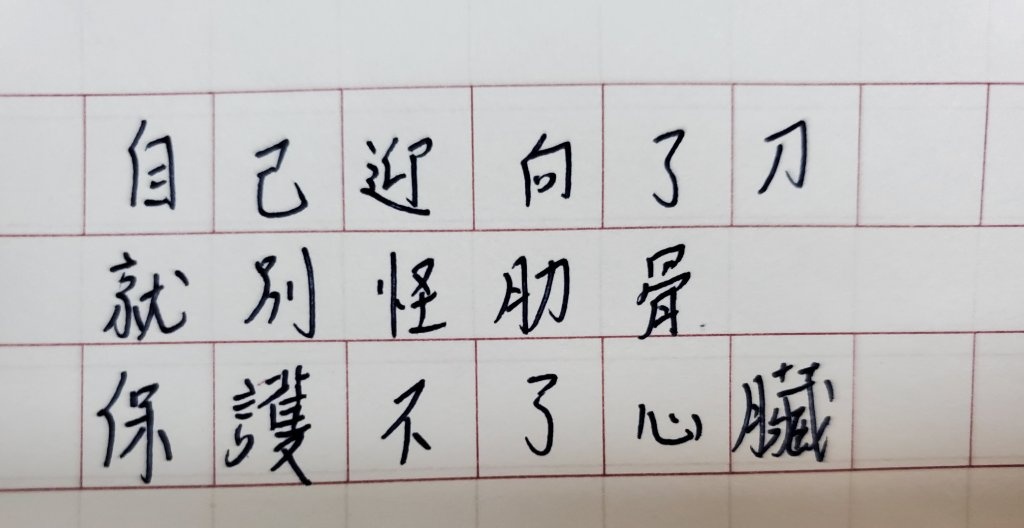 自己迎向了刀
就別怪肋骨
保護不了心臟